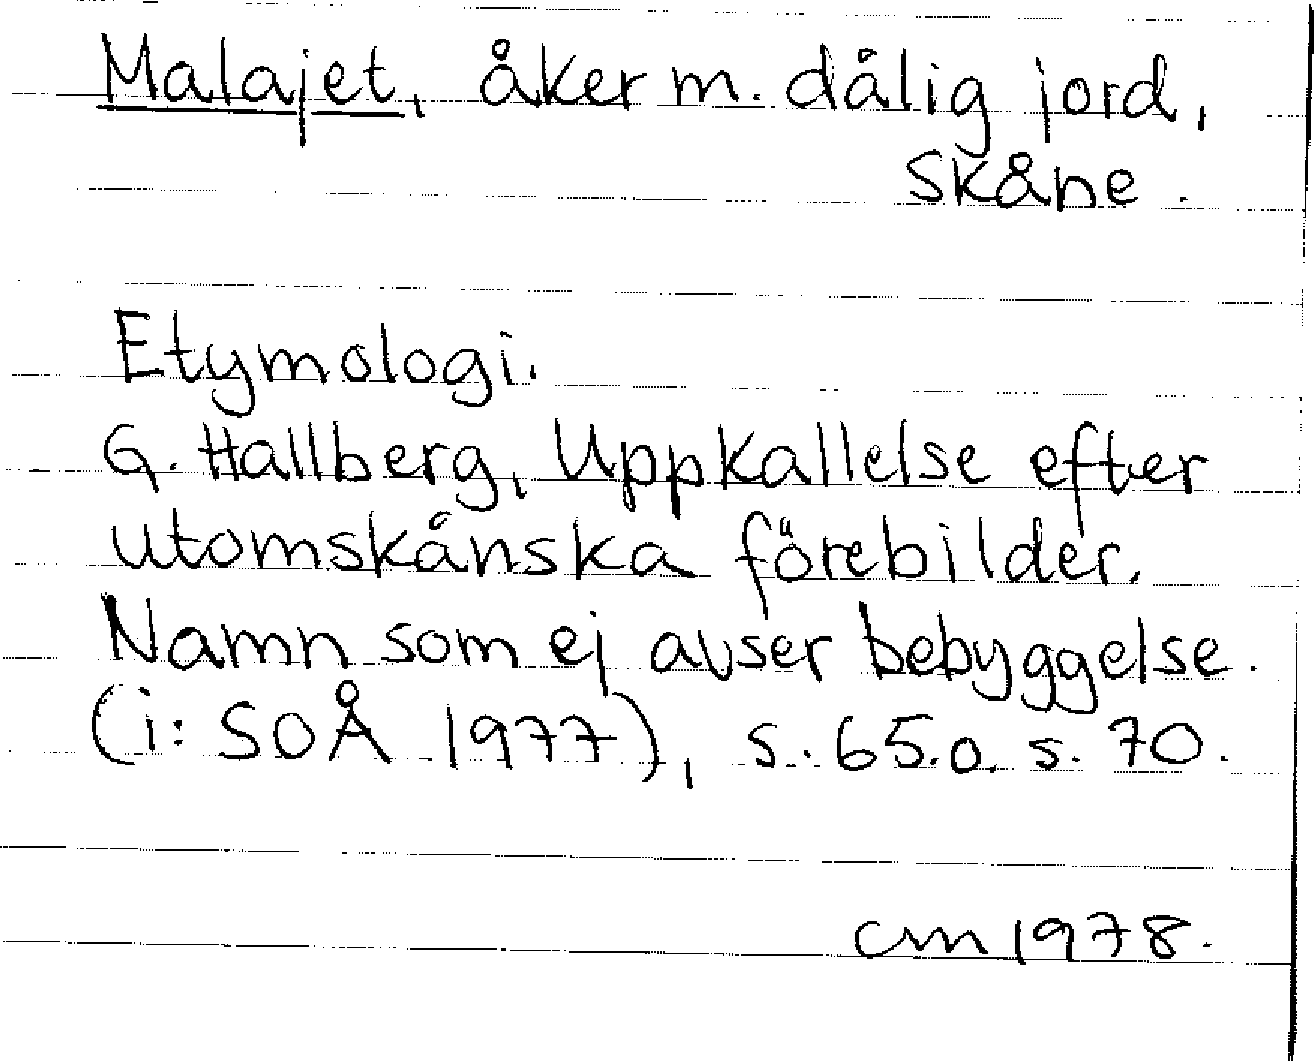 Malajet, åker m. dålig jord,
Skåne.
Etymologi.
G. Hallberg, Uppkallelse efter
utomskånska förebilder.
Namn som ej avser bebyggelse.
(i: SOÅ 1977), s. 65.o. s. 70.
cm 1978.